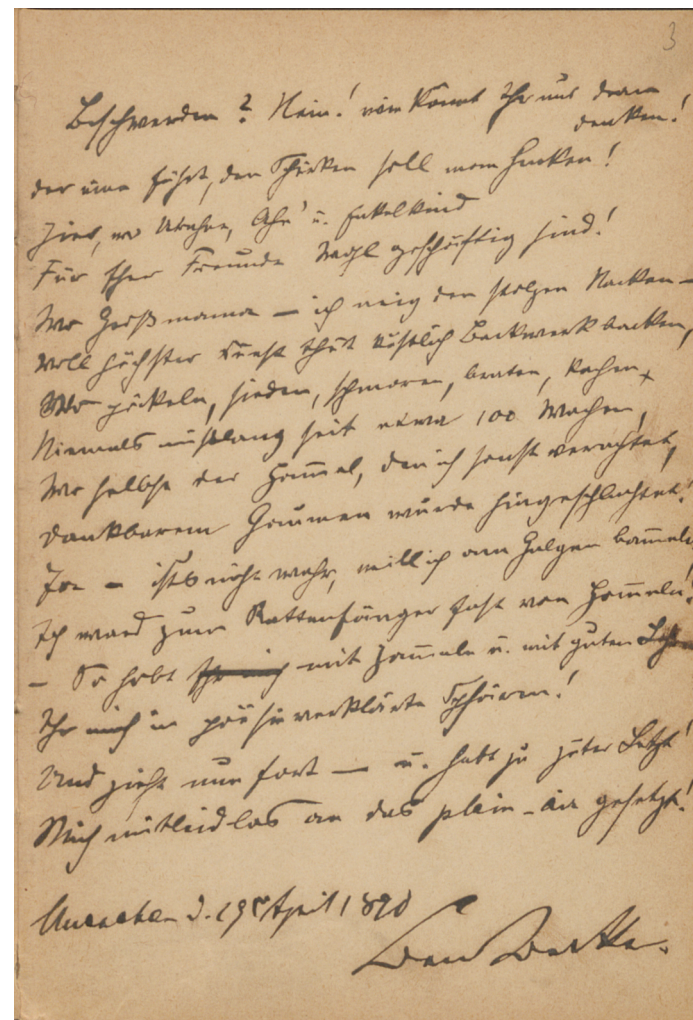 3
Beschwerden? Nein! wie könnt Ihr nur dran
denken!
der führt, den soll man
Hier, wo Urahne, Ahn' u. Enkelkind
Für Ihre Freunde Wohl geschäftig sind!
Wo Großmama – ich neig den stolzen Nacken –
Voll höchster Kunst thut köstlich Backwerk backen,
Wo pöckeln, sieden, schmoren, braten, kochen,
Niemals mißlang seit etwa 100 Wochen,
Wo selbst der Ham̅el, den ich sonst verachtet,
Dankbarem Gaumen wurde hingeschlachtet!
Ja – ists nicht wahr, will ich am Galgen bam̅eln
Ich ward zum Rattenfänger fast von Ham̅eln!
– So habt mit Ham̅eln u. mit guten
Ihr mich in poësieverklärte Sphären!
Und zieht nun fort – u. habt zu guter Letzt!
Mich mitleidlos an das plein-air gesetzt!
d. 29 April 1890